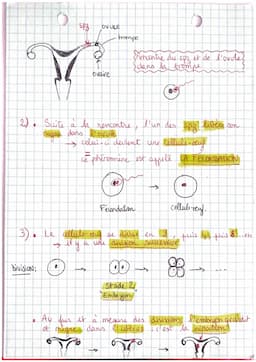 spz
ovule
trompe
ovaire
Rencontre du spz et de l'ovule
dans la trompe
2) • Suite à la rencontre, l'un des spz libère son
noyau dans l'ovule
→ celui-ci devient une cellule-oeuf
ce phénomène est appelé LA FECONDATION
Fécondation
cellule-oeuf.
3) • La cellule-oeuf se divise en 2, puis 4, puis 8... en
→ il y a une division successive
Division:
Stade 2/
Embryon
• Au fur et à mesure des divisions, l'embryon grandit
et migre dans l'utérus : c'est la nidation